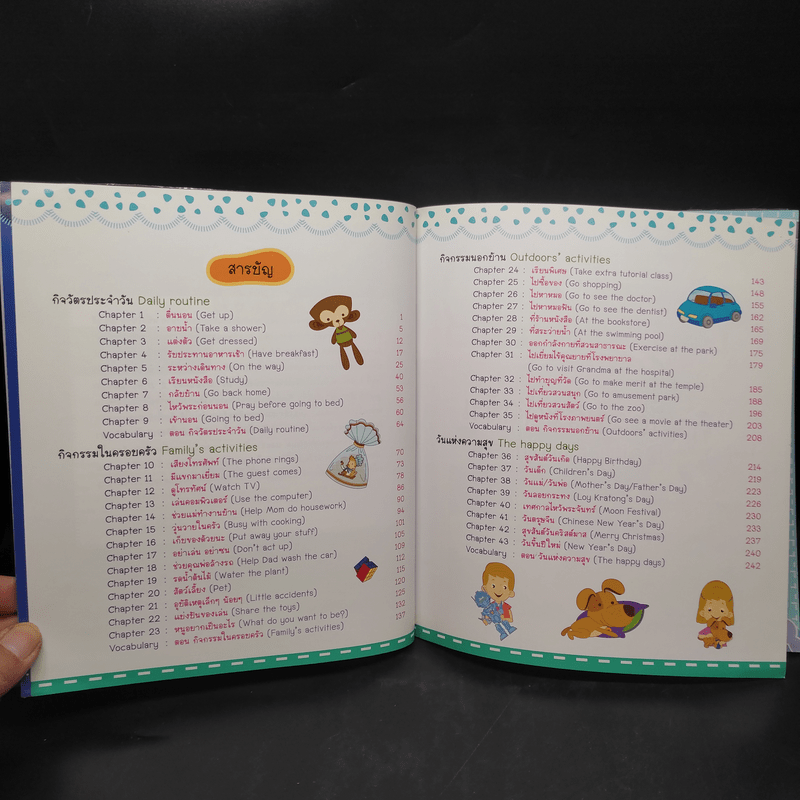 สารบัญ
กิจวัตรประจำวัน Daily routine
Chapter 1 : ตื่นนอน (Get up) 1
Chapter 2 : อาบน้ำ (Take a shower) 5
Chapter 3 : แต่งตัว (Get dressed) 12
Chapter 4 : รับประทานอาหารเช้า (Have breakfast) 17
Chapter 5 : ระหว่างเดินทาง (On the way) 25
Chapter 6 : เรียนหนังสือ (Study) 40
Chapter 7 : กลับบ้าน (Go back home) 53
Chapter 8 : ไหว้พระก่อนนอน (Pray before going to bed) 56
Chapter 9 : เข้านอน (Going to bed) 60
Vocabulary : ตอน กิจวัตรประจำวัน (Daily routine) 64
กิจกรรมในครอบครัว Family's activities
Chapter 10 : เสียงโทรศัพท์ (The phone rings) 70
Chapter 11 : มีแขกมาเยี่ยม (The guest comes) 73
Chapter 12 : ดูโทรทัศน์ (Watch TV) 78
Chapter 13 : เล่นคอมพิวเตอร์ (Use the computer) 86
Chapter 14 : ช่วยแม่ทำงานบ้าน (Help Mom do housework) 90
Chapter 15 : วุ่นวายในครัว (Busy with cooking) 94
Chapter 16 : เก็บของด้วยนะ (Put away your stuff) 101
Chapter 17 : อย่าเล่น อย่าซน (Don't act up) 105
Chapter 18 : ช่วยคุณพ่อล้างรถ (Help Dad wash the car) 109
Chapter 19 : รดน้ำต้นไม้ (Water the plant) 112
Chapter 20 : สัตว์เลี้ยง (Pet) 115
Chapter 21 : อุบัติเหตุเล็กๆ น้อยๆ (Little accidents) 120
Chapter 22 : แบ่งปันของเล่น (Share the toys) 125
Chapter 23 : หนูอยากเป็นอะไร (What do you want to be?) 132
Vocabulary : ตอน กิจกรรมในครอบครัว (Family's activities) 137
กิจกรรมนอกบ้าน Outdoors' activities
Chapter 24 : เรียนพิเศษ (Take extra tutorial class) 143
Chapter 25 : ไปซื้อของ (Go shopping) 148
Chapter 26 : ไปหาหมอ (Go to see the doctor) 155
Chapter 27 : ไปหาหมอฟัน (Go to see the dentist) 162
Chapter 28 : ที่ร้านหนังสือ (At the bookstore) 165
Chapter 29 : ที่สระว่ายน้ำ (At the swimming pool) 169
Chapter 30 : ออกกำลังกายที่สวนสาธารณะ (Exercise at the park) 175
Chapter 31 : ไปเยี่ยมไข้คุณยายที่โรงพยาบาล 179
(Go to visit Grandma at the hospital)
Chapter 32 : ไปทำบุญที่วัด (Go to make merit at the temple) 185
Chapter 33 : ไปเที่ยวสวนสนุก (Go to amusement park) 188
Chapter 34 : ไปเที่ยวสวนสัตว์ (Go to the zoo) 196
Chapter 35 : ไปดูหนังที่โรงภาพยนตร์ (Go see a movie at the theater) 203
Vocabulary : ตอน กิจกรรมนอกบ้าน (Outdoors' activities) 208
วันแห่งความสุข The happy days
Chapter 36 : สุขสันต์วันเกิด (Happy Birthday) 214
Chapter 37 : วันเด็ก (Children's Day) 219
Chapter 38 : วันแม่/วันพ่อ (Mother's Day/Father's Day) 223
Chapter 39 : วันลอยกระทง (Loy Kratong's Day) 226
Chapter 40 : เทศกาลไหว้พระจันทร์ (Moon Festival) 230
Chapter 41 : วันตรุษจีน (Chinese New Year's Day) 233
Chapter 42 : สุขสันต์วันคริสต์มาส (Merry Christmas) 237
Chapter 43 : วันขึ้นปีใหม่ (New Year's Day) 240
Vocabulary : ตอน วันแห่งความสุข (The happy days) 242